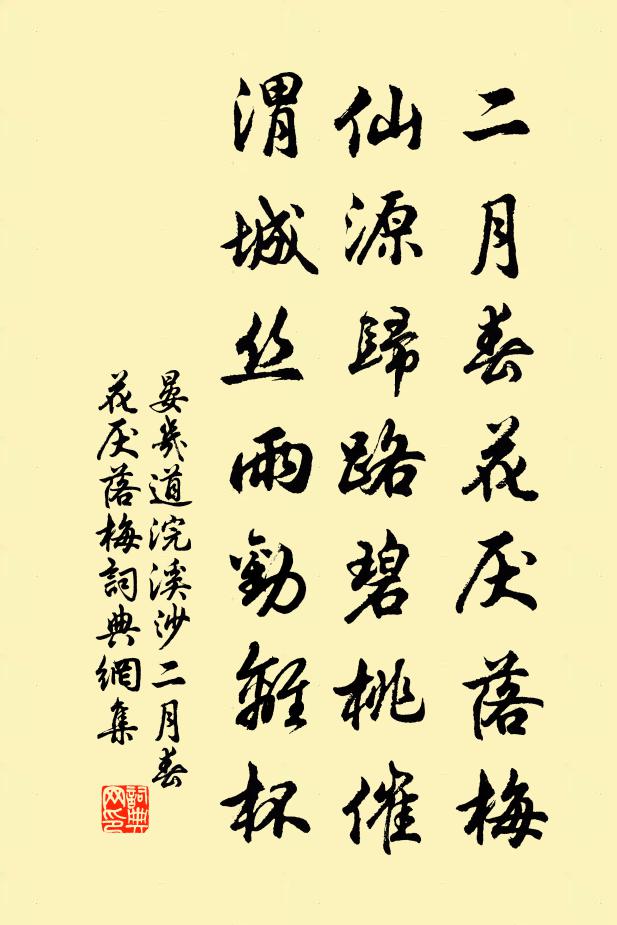 二月春花厌落梅
仙源歸路碧桃催
渭城丝雨勸離杯
晏幾道浣溪沙二月春
花厌落梅詞典網集
詞典
网印